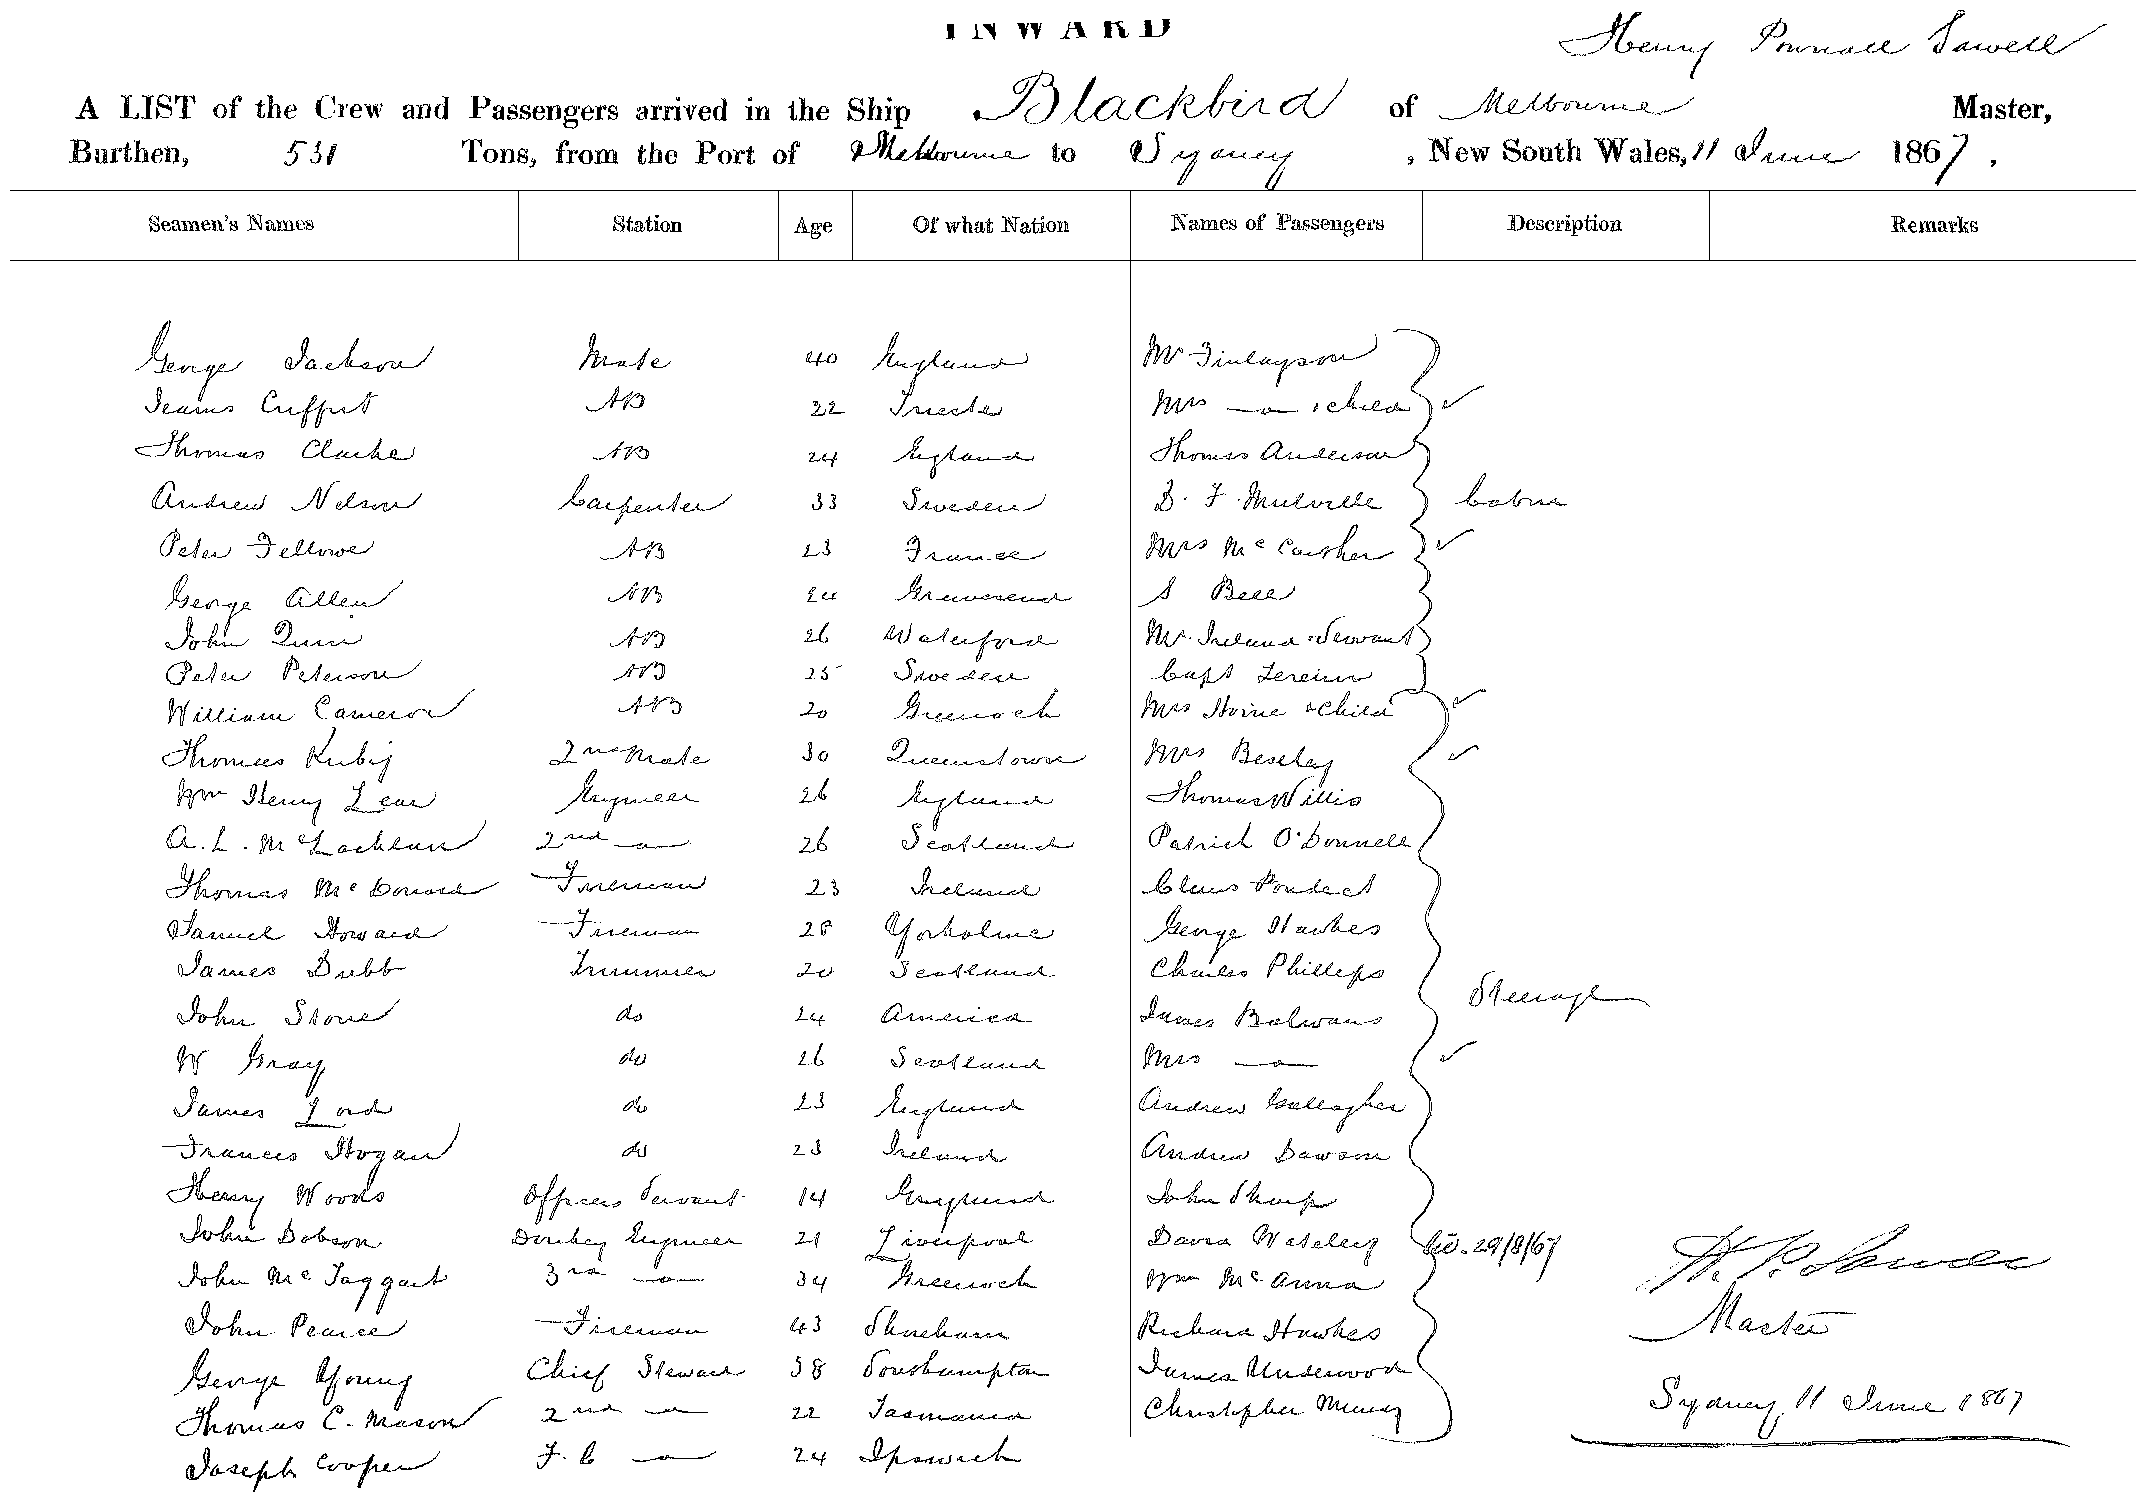 INWARD
Henry Pownall Sawell
A LIST of the Crew and Passengers arrived in the Ship Blackbird of Melbourne Master,
Burthen, 531 Tons, from the Port of Melbourne to Sydney, New South Wales, 11 June 1867.
Seamen's Names Station Age Of what Nation Names of Passengers Description Remarks
George Jackson Mate 40 England Mr Finlayson
AB 22 Trieste Mrs —do— & child ✓
Thomas Clarke AB 24 England Thomas Anderson
Andrew Nelson Carpenter 33 Sweden D. F. Mulville Cabin
Peter Fellowe AB 23 France Mrs Mc ✓
George Allen AB 24 Gravesend S Bell
John Quin AB 26 Waterford Mr Ireland & Servant
Peter Peterson AB 25 Sweden Capt
William Cameron AB 20 Greenock Mrs Horne & Child ✓
Thomas 2nd Mate 30 Queenstown Mrs Beseley ✓
Wm Henry Lear Engineer 26 England Thomas Willis
A. L. McLachlan 2nd —do— 26 Scotland Patrick O'Donnell
Thomas Mc Fireman 23 Ireland Claus
Samuel Howard Fireman 28 George Hawkes
James Dubb Trimmer 20 Scotland Charles Phillips
John Stone do 24 America James
W Gray do 26 Scotland Mrs —do— ✓
James Lord do 23 England Andrew Gallagher
Frances Hogan do 23 Ireland Andrew Dawson
Steerage
Henry Woods Officers Servant 14 England John Sharp
John Dobson Donkey Engineer 21 Liverpool David 29/8/67
John McTaggart 3rd —do— 34 Greenock Wm McAnna
H. P. Sawell
John Pearce Fireman 43 Shoreham Richard Hawkes
Master
George Young Chief Steward 38 Southampton James Underwood
Thomas C. Mason 2nd —do— 22 Tasmania Christopher Murray
Sydney, 11 June 1867
Joseph Cooper F. C —do— 24 Ipswich